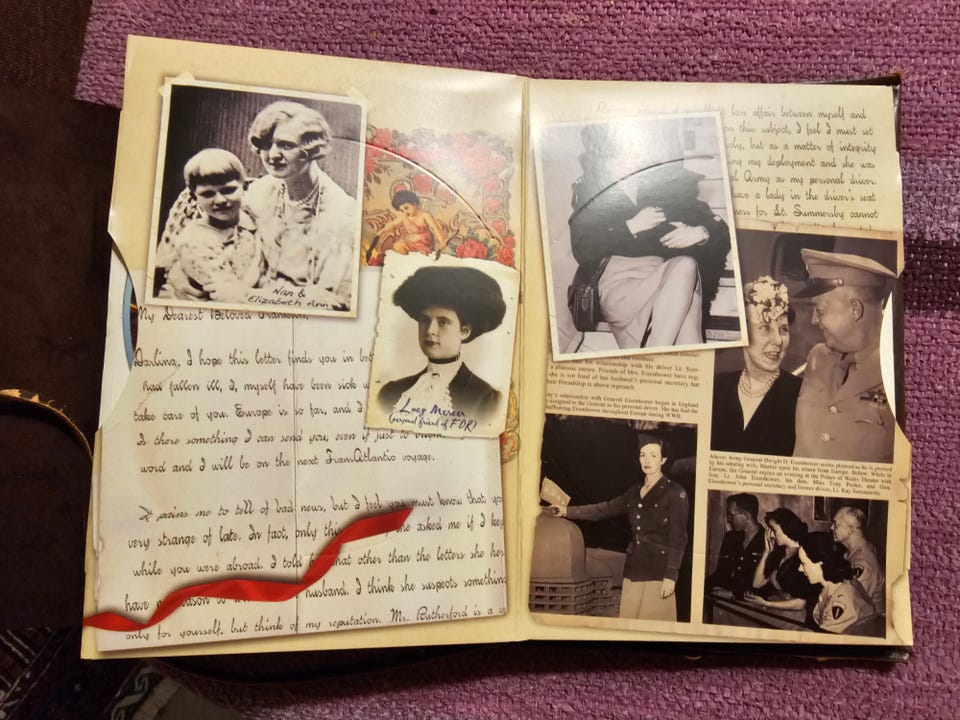 Nan &
Elizabeth Ann
My Dearest Beloved Franklin,
Darling, I hope this letter finds you in bet
had fallen ill, I, myself have been sick w
take care of you. Europe is so far, and I
Is there something I can send you, even if just to
word and I will be on the next TransAtlantic voyage.
It pains me to tell of bad news, but I feel you must know that yo
very strange of late. In fact, only this she asked me if I kep
while you were abroad. I told h that other than the letters she her
have no reason to husband. I think she suspects something
only for yourself, but think of my reputation. Mr. Rutherford is a
Lucy Mercer
(personal friend of FDR)
love affair between myself and
on this subject, I feel I must set
but as a matter of integrity
ng my deployment and she was
l Army as my personal driver.
have a lady in the driver's seat
ness for Lt. Summersby cannot
his relationship with his driver Lt. Sum-
a platonic nature. Friends of Mrs. Eisenhower have sug-
she is not fond of her husband's personal secretary but
heir friendship is above reproach.
y's relationship with General Eisenhower began in England
assigned to the General as his personal driver. She has had the
hauffeuring Eisenhower throughout Europe during WWII.
Above: Army General Dwight D. Eisenhower seems pleased as he is greeted
by his adoring wife, Mamie upon his return from Europe. Below: While in
Europe, the General enjoys an evening at the Prince of Wales Theatre with
Son, Lt. John Eisenhower, his date, Miss Tony Porter, and Gen.
Eisenhower's personal secretary and former driver, Lt. Kay Summersby.